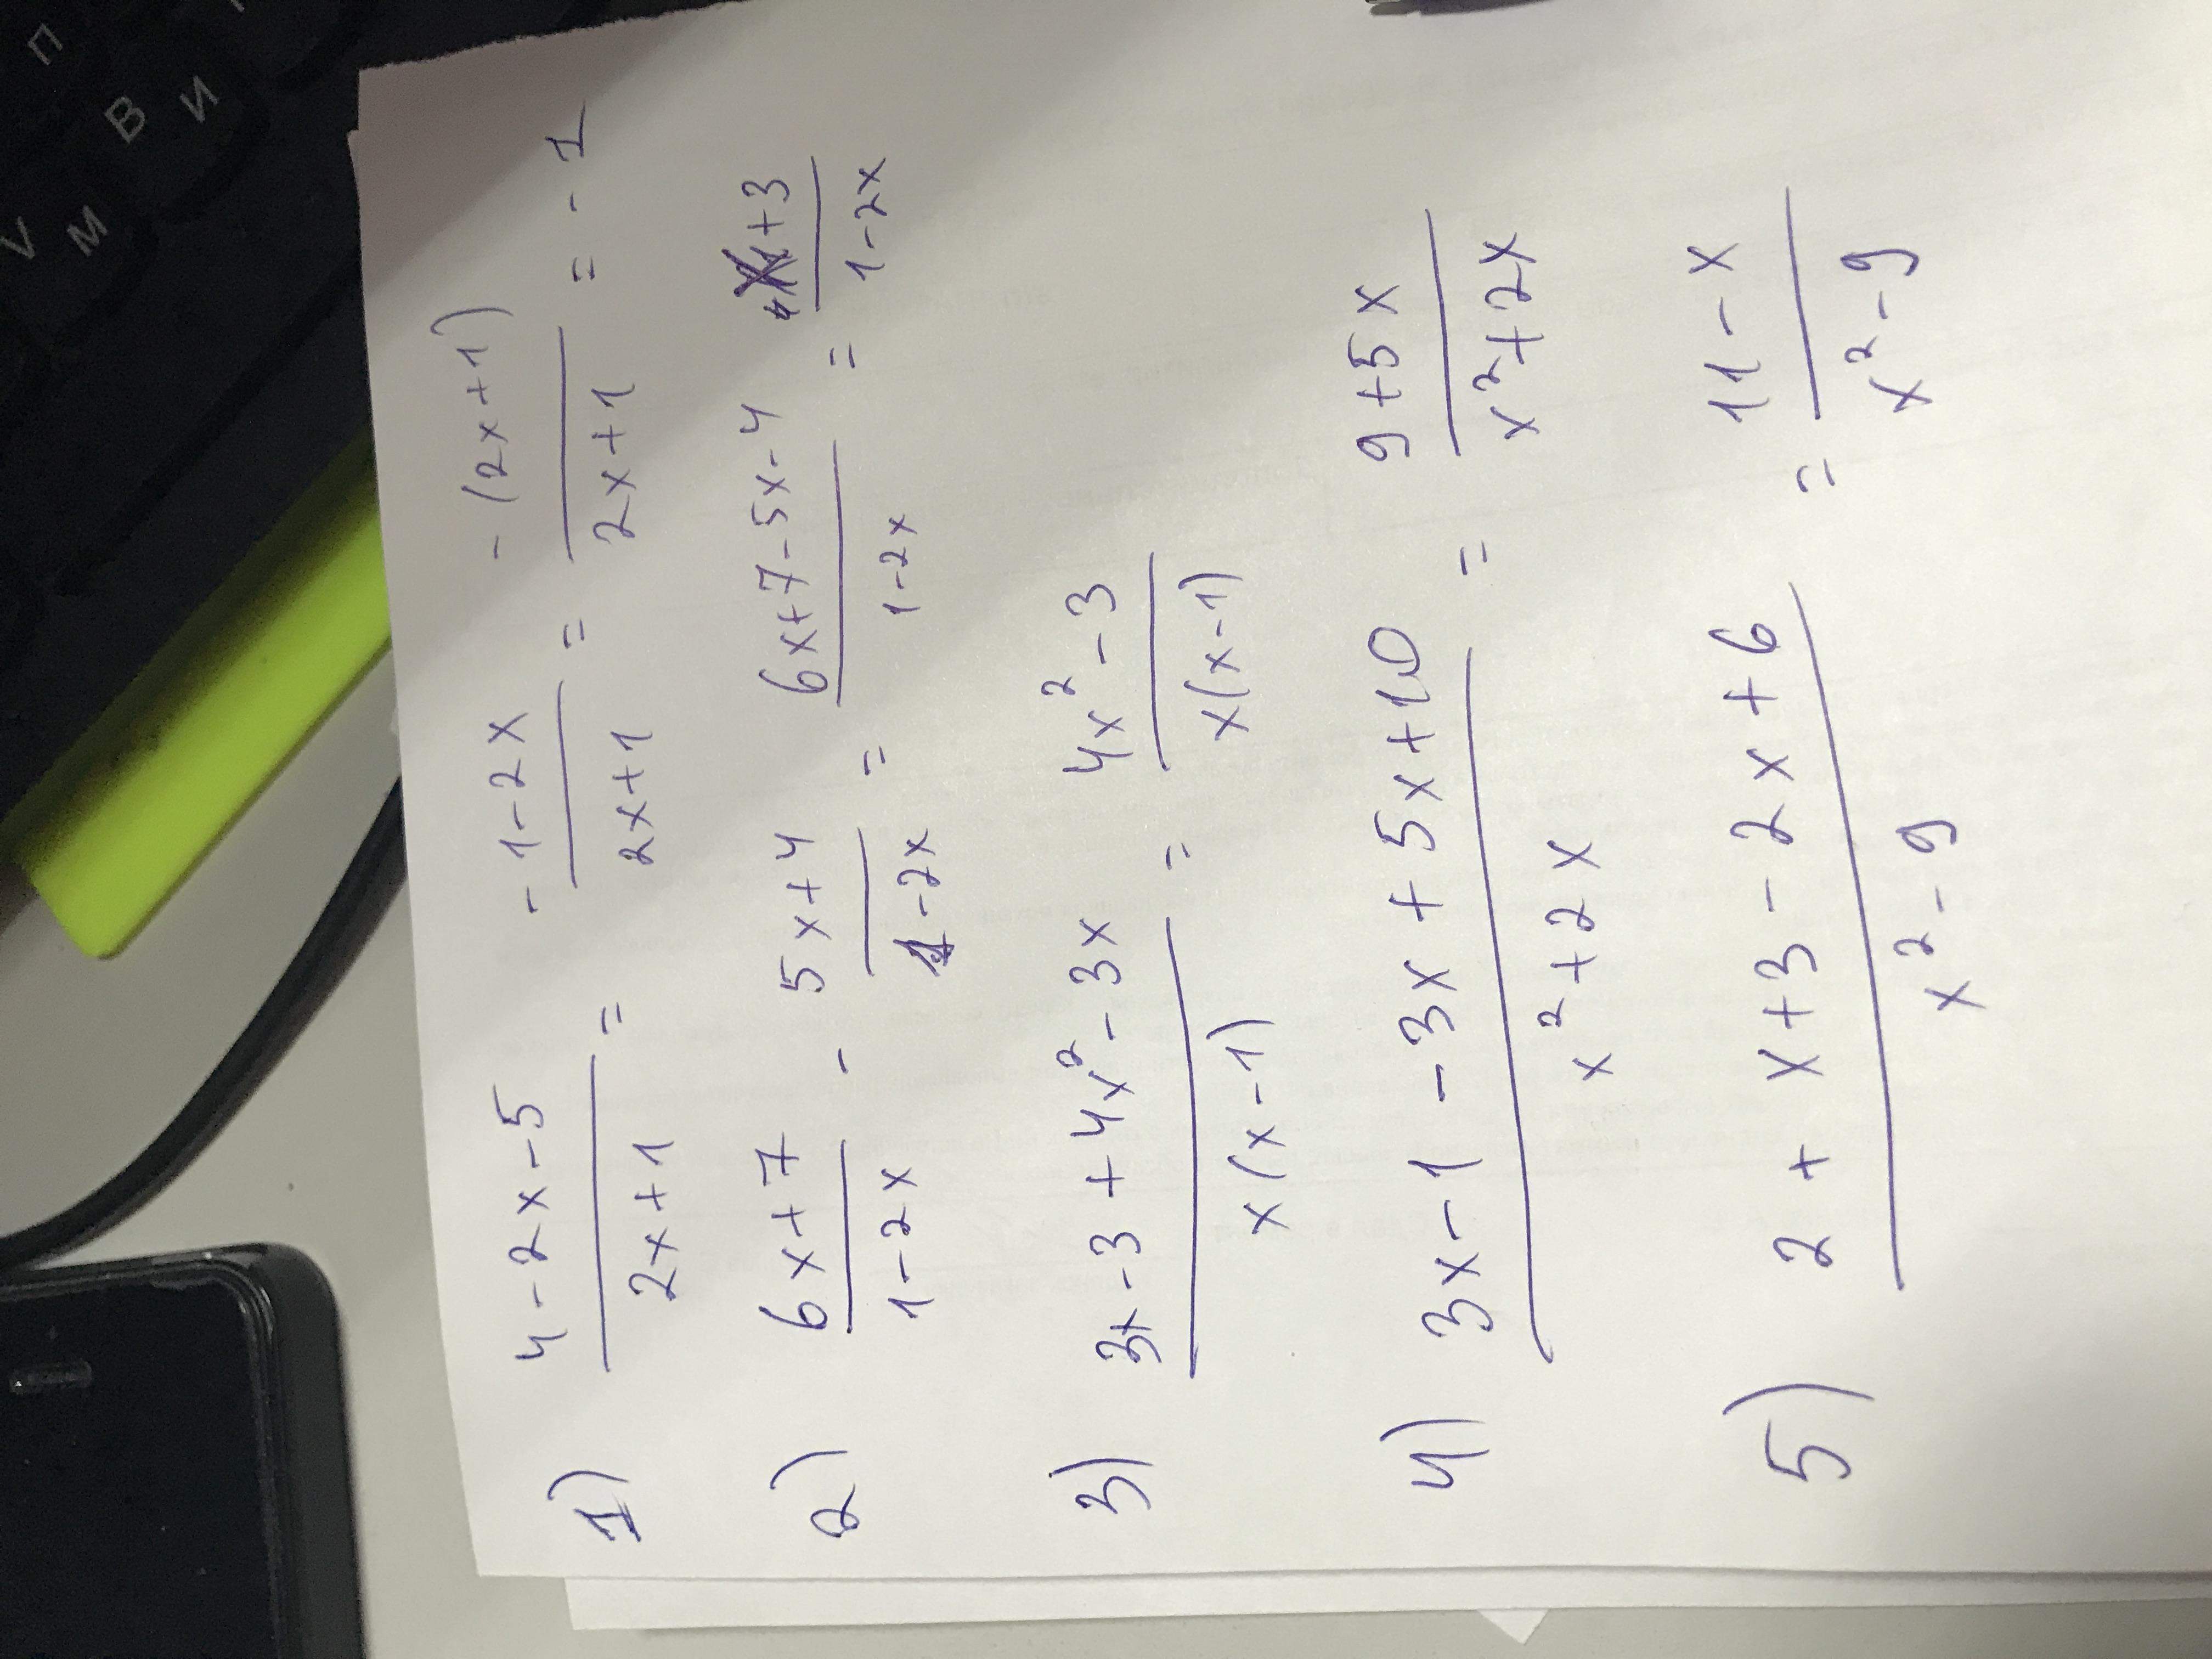 1) (4-2x-5)/(2x+1) = (-1-2x)/(2x+1) = (-(2x+1))/(2x+1) = -1
2) (6x+7)/(1-2x) - (5x+4)/(1-2x) = (6x+7-5x-4)/(1-2x) = (x+3)/(1-2x)
3) (3x-3+4x²-3x)/(x(x-1)) = (4x²-3)/(x(x-1))
4) (3x-1-3x+5x+10)/(x²+2x) = (9+5x)/(x²+2x)
5) (2+x+3-2x+6)/(x²-9) = (11-x)/(x²-9)
П
В И
V М